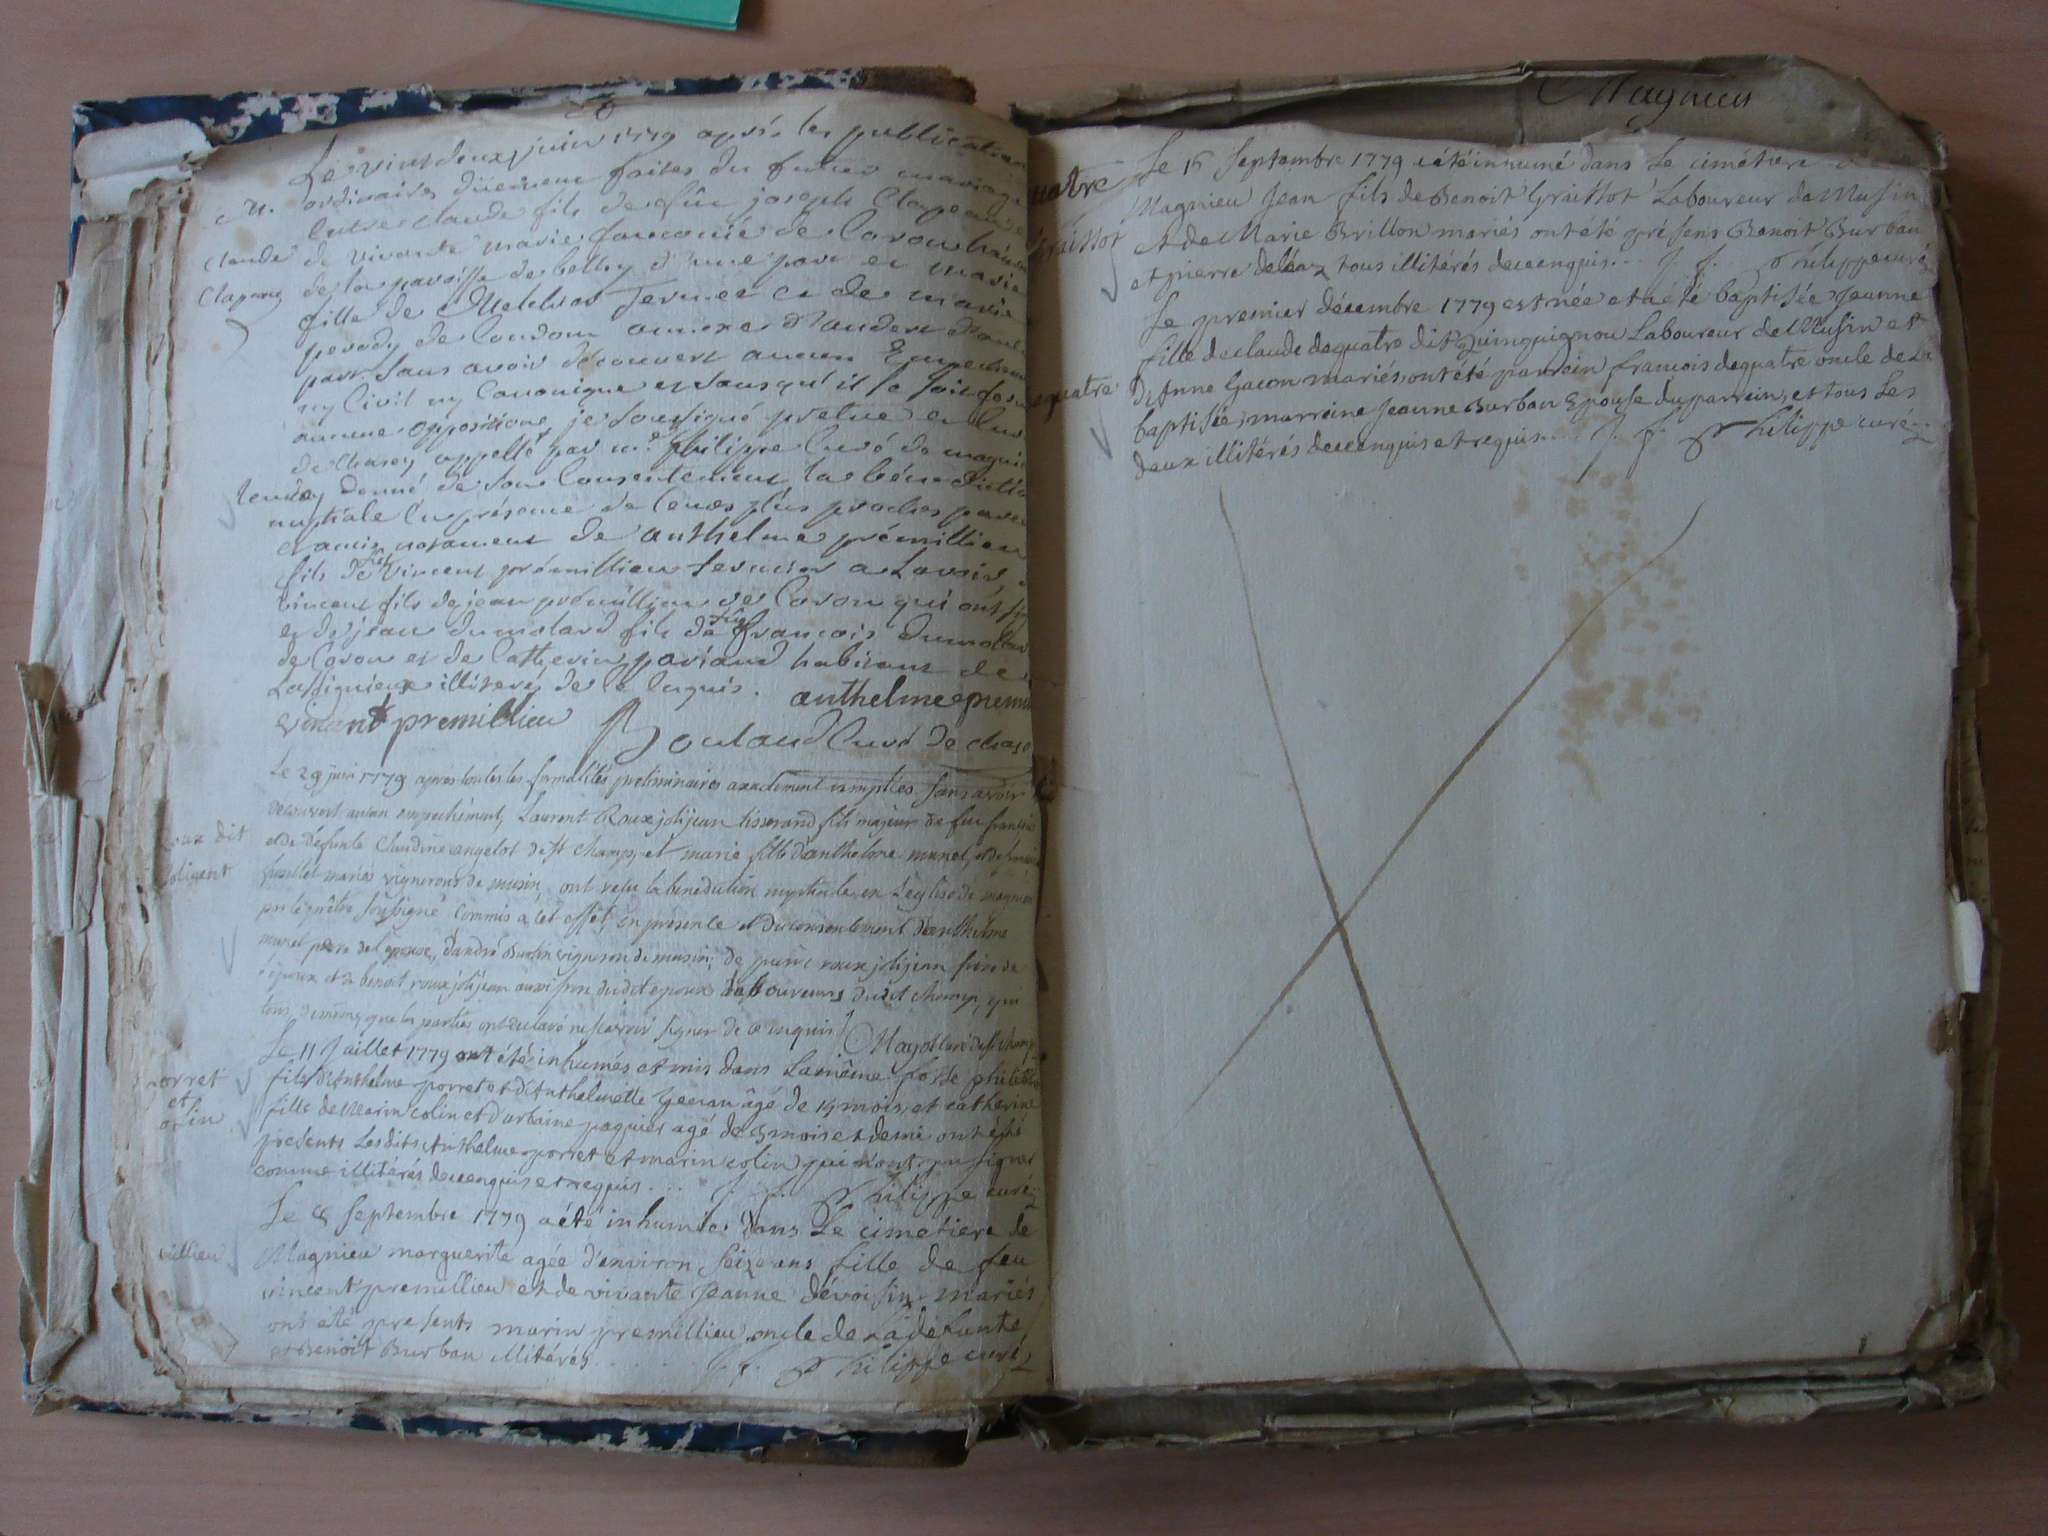 Le vint deux juin 1779 après les publications
M. ordinaires düement faites du futur mariage
Entre claude fils de feu joseph Claperon
claude de vivante marie de Coron
Clapong de la paroisse de belley d'une part et marie
fille de Melchior et de marie
perody de Coudon annexe d'andert d'autre
part sans avoir découvert aucun Empechem
ny Civil ny Canonique et sans qu'il se soit formé
aucune opposition, je soussigné pretre et Curé
de Chazey appellé par mr philippe Curé de magnieu
donné de son Consentement la bénédiction
nuptiale En présence de leurs plus proches parens
et amis notament de anthelme prémillieu
fils de feu Vincent prémillieu fermier a Lavoir,
vincent fils de jean prémillieu de Coron qui ont signé
et de jean dumolard fils de feu françois dumollard
de Coron et de habitant de
Lassignieux illiterés de ce Enquis. anthelme premi
vincent premillieu Boulaud Curé de chaze
Le 29 juin 1779 après toutes les formalités preliminaires exactement remplies sans avoir
decouvert aucun empechement, Laurent Roux jolijean tisserand fils majeur de feu françois
et de défunte Claudine angelot de st champ, et marie fille d'anthelme munet, et de
oux dit
olijent fusillet mariés vignerons de musin, ont reçu la bénédiction nuptiale en L'église de magnieu
par le prêtre soussigné commis a cet effet, en presence et du consentement d'anthelme
munet pere de l'epouse, d'andré Burtin vigneron de musin, de pierre roux jolijean frère de
l'époux et de benoit roux jolijean aussi frere dudit époux laboureurs dudit st champ, qui
tous, de même que les parties ont declaré ne scavoir signer de ce enquis. Mayot curé de st champ
Le 11 Juillet 1779 ont été inhumés et mis dans La même fosse philibert
orret fils d'Anthelme porret et d'Anthelmette âgé de 14 mois, et catherine
et
olin fille de Marin colin et d'urbaine paquier agé de 5 mois et demi ont été
presents Lesdits Anthelme porret et marin colin qui n'ont pu signer
comme illitérés de ce enquis et requis... J. f. Philippe curé
Le 8 septembre 1779 a été inhumée dans Le cimetiere de
illieu Magnieu marguerite agée d'environ seize ans fille de feu
vincent premillieu et de vivante Jeanne dévoisin mariés
ont été presents marin premillieu oncle de La defunte
et Benoit Burban illitérés ..... J. f. Philippe curé
Magnieu
Le 16 Septembre 1779 a été inhumé dans Le cimétiere de
uatre
Magnieu Jean fils de Benoit Graissot Laboureur de Musin
Graissot Et de Marie Brillon mariés ont été présens Benoit Burban
et pierre deléaz tous illitérés de ce enquis... J. f. Philippe curé
Le premier décembre 1779 est née et a été baptisée Jeanne
fille de claude dequatre dit Quinquignon Laboureur de Musin et
equatre D'Anne Gacon mariés, ont été parrein francois dequatre oncle de La
baptisée; marreine Jeanne Burban Epouse du parrein, et tous Les
deux illitérés de ce enquis et requis... J. f. Philippe curé